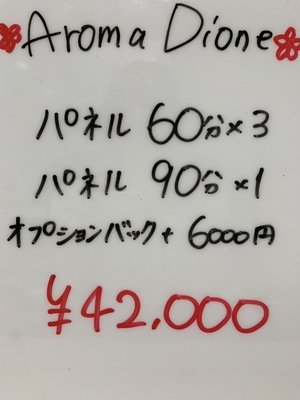 Aroma Dione
パネル 60分×3
パネル 90分×1
オプションバック+ 6000円
¥42.000